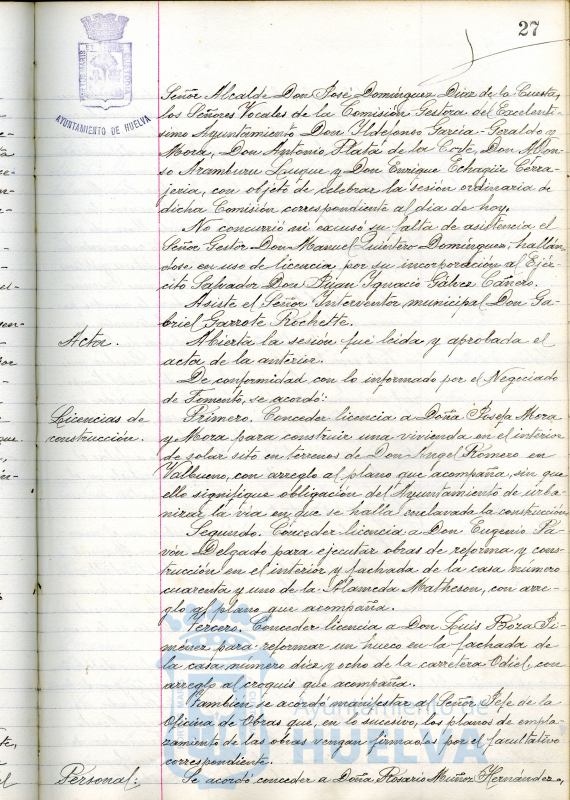 27
AYUNTAMIENTO DE HUELVA
Señor Alcalde Don José Domínguez Diaz de la Cuesta,
los Señores Vocales de la Comisión Gestora del Excelentí-
simo Ayuntamiento Don Ildefonso García-Geraldo y
Mora, Don Antonio Plata de la Corte, Don Alfon-
so Aramburu Luque y Don Enrique Echagüe Cerra-
jería, con objeto de celebrar la sesión ordinaria de
dicha Comisión correspondiente al día de hoy.
No concurrió ni excusó su falta de asistencia el
Señor Gestor Don Manuel Quintero Domínguez, hallán-
dose en uso de licencia por su incorporación al Ejér-
cito Salvador Don Juan Ignacio Gálvez Cañero.
Asiste el Señor Interventor municipal Don Ga-
briel Garrote Rochette.
Acta.
Abierta la sesión fué leida y aprobada el
acta de la anterior.
De conformidad con lo informado por el Negociado
de Fomento, se acordó:
Licencias de
construcción.
Primero. Conceder licencia a Doña Josefa Mora
y Mora para construir una vivienda en el interior
de solar sito en terrenos de Don Angel Romero en
Valbueno, con arreglo al plano que acompaña, sin que
ello signifique obligación del Ayuntamiento de urba-
nizar la vía en que se halla enclavada la construcción
Segundo. Conceder licencia a Don Eugenio Pa-
vón Delgado para ejecutar obras de reforma y cons-
trucción en el interior y fachada de la casa número
cuarenta y uno de la Alameda Matheson, con arre-
glo al plano que acompaña.
Tercero. Conceder licencia a Don Luis Bora Ji-
ménez para reformar un hueco en la fachada de
la casa número diez y ocho de la carretera Odiel, con
arreglo al croquis que acompaña.
Tambien se acordó manifestar al Señor Jefe de la
Oficina de Obras que, en lo sucesivo, los planos de empla-
zamiento de las obras vengan firmados por el facultativo
correspondiente.
Ayuntamiento de
HUELVA
Personal:
Se acordó conceder a Doña Rosario Muñoz Hernández,